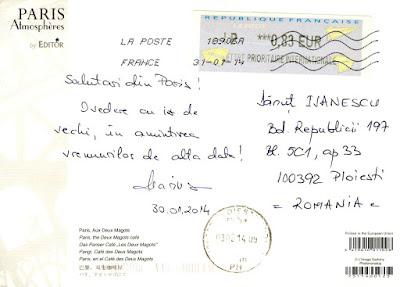 PARIS
Atmosphères
by EDITOR
LA POSTE 18908A
FRANCE 31-01-14
REPUBLIQUE FRANCAISE
LP ***0,83 EUR
LETTRE PRIORITAIRE INTERNATIONALE
Salutari din Paris!
O vedere cu iz de
vechi, în amintirea
vremurilor de altă dată!
Marius
30.01.2014
Dănuț IVANESCU
Bd. Republicii 197
Bl. 5C1, ap 33
100392 Ploiesti
= ROMANIA =
03 02 14 09
PH
Paris, Aux Deux Magots
Paris, the Deux Magots café
Das Pariser Café „Les Deux Magots"
Parigi, Café des Deux Magots
Paris, en el Café des Deux Magots
Printed in the European Union